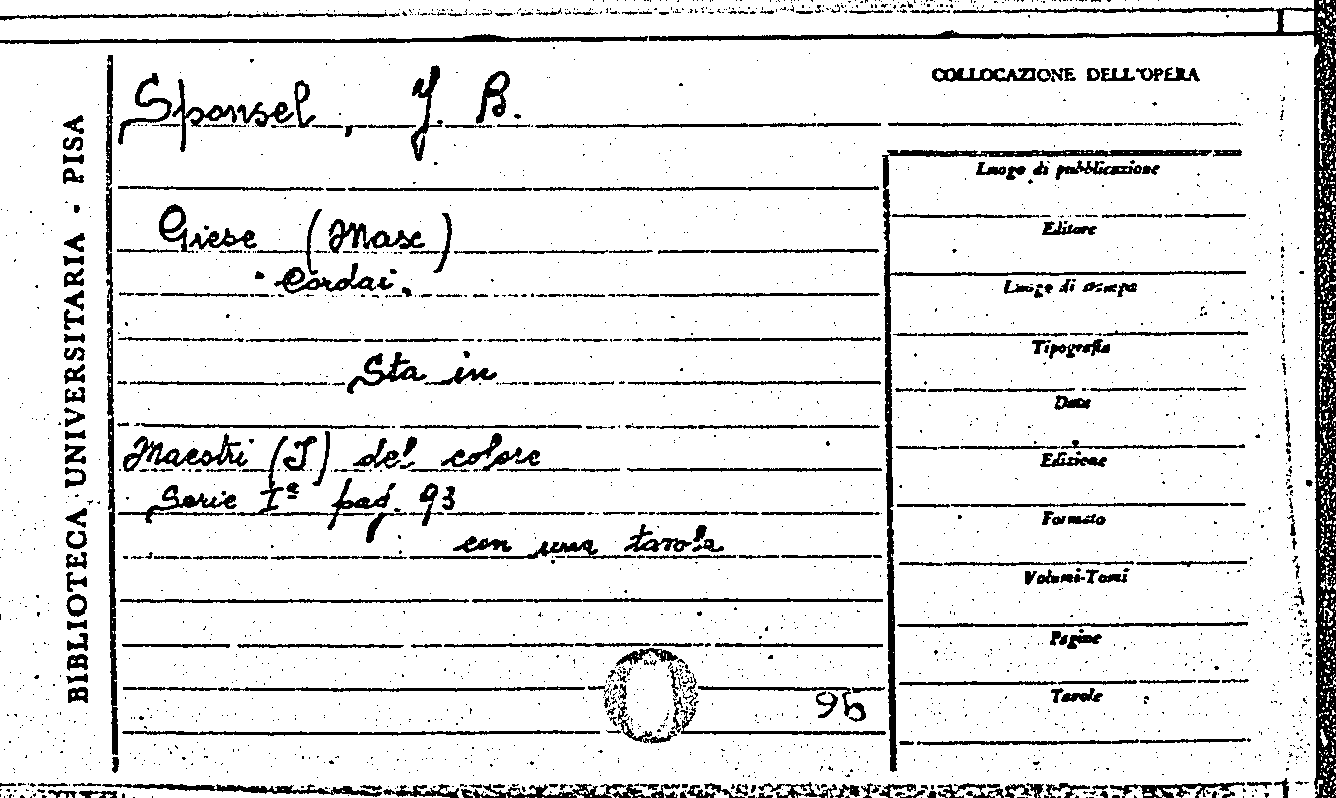 BIBLIOTECA UNIVERSITARIA - PISA
Sponsel, J. B.
Giese (Max)
Cordai.
Sta in
Maestri (I) del colore
Serie Iª pag. 93
con una tavola
95
COLLOCAZIONE DELL'OPERA
Luogo di pubblicazione
Editore
Luogo di stampa
Tipografia
Data
Edizione
Formato
Volumi-Tomi
Pagine
Tavole